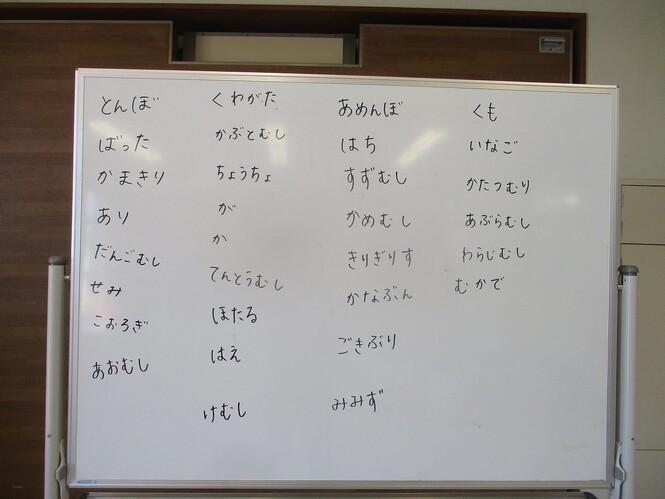 とんぼ
ばった
かまきり
あり
だんごむし
せみ
こおろぎ
あおむし
くわがた
かぶとむし
ちょうちょ
が
か
てんとうむし
ほたる
はえ
けむし
あめんぼ
はち
すずむし
かめむし
きりぎりす
かなぶん
ごきぶり
みみず
くも
いなご
かたつむり
あぶらむし
わらじむし
むかで